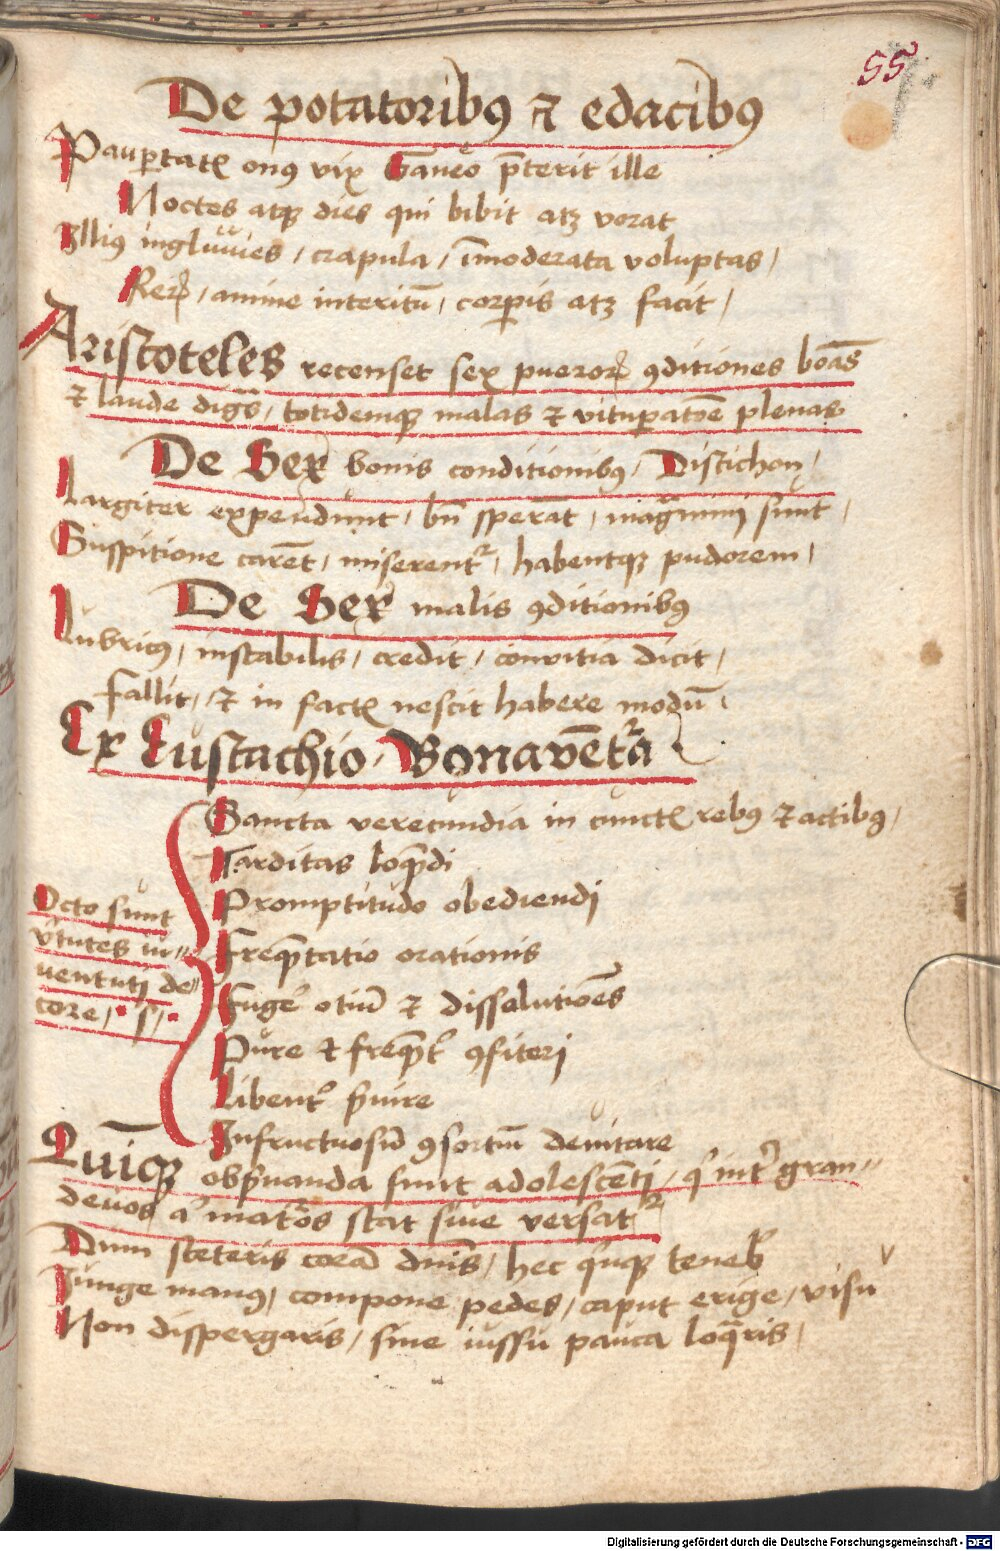 55
De potatoribꝰ ⁊ edacibꝰ
Paup̱tatꝭ onꝰ vix Ganeo p̄terit ille
Noctes atqꝫ dies qui bibit atqꝫ vorat
Illiꝰ ingluuies / crapula / īmoderata voluptas /
Reꝝ / anime interitū / corꝑis atqꝫ facit /
Aristoteles recenset sex pueroꝝ ꝯditiones boās
⁊ laude digās / totidemqꝫ malas ⁊ vituꝑatōe plenas
De Sex bonis conditionibꝰ / Distichon /
Largiter expendunt / bn̄ sperāt / magnīmi sunt /
Suspitione carēt / miserentᷣ / habentqꝫ pudorem /
De Sex malis ꝯditionibꝰ
Lubricꝰ / instabilis / credit / conuitia dicit /
Fallit / ⁊ in factꝭ nescit habere modū /
Ex Eustachio Bonavētᷓa
Octo sunt
v̓tutes iu=
uentuti de=
core / · s /·
Sancta verecundia in cunctꝭ rebꝰ ⁊ actibꝰ /
Tarditas loq̄ndi
Promptitudo obediendi
Freq̄ntatio orationis
Fuge᷑ otiū ⁊ dissolutiōes
Pure ⁊ freq̄nt᷑ ꝯfiteri
Libent᷑ ẜuire
Infructuosū ꝯsortiū deuitare
Quīqꝫ obẜuanda sunt adolescēti / qͥ int᷑ gran=
deuos aͭ matᷓos stat siue versatᷣ
Dum steteris corā dnīs / hec qͥnqꝫ teneb᷑
Iunge manꝰ / compone pedes / caput erige / visu
Non dispergaris / sine iussu pauca loq̄ris /
Digitalisierung gefördert durch die Deutsche Forschungsgemeinschaft - DFG